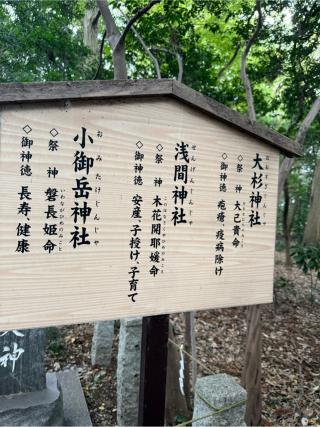 大杉神社
おおすぎじんじゃ
◇祭神 大己貴命
◇御神徳 疱瘡・疫病除け
浅間神社
せんげんじんじゃ
◇祭神 木花開耶媛命
◇御神徳 安産、子授け、子育て
小御岳神社
おみたけじんじゃ
◇祭神 磐長姫命
いわながひめのみこと
◇御神徳 長寿、健康
神